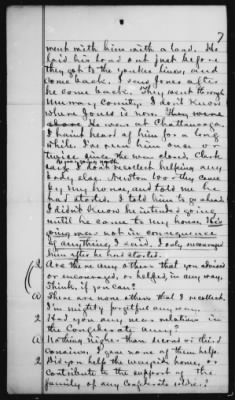 7
went with him with a land. He
laid his load out just before
they got to the yankee lines, and
come back. I seen Jones after
he come back. They went through
Murray County. I don't know
where Jones is now. They were
above. He were at Chattanooga.
I haint heard of him for a long
while. I've seen him once or
twice since the war closed. Clark
says I dont recollect helping any
body else. Neston too - they came
by my house, and told me he
had started. I told him to go ahead.
I didn't know he intended going
until he come to my house. His
going were not in consequence
of anything I said. I only encouraged
him after he had started.
Q Are there any others that you advised
or encouraged, or helped, in any way,
Think, if you can?
A There are none others that I recollect.
I'm mighty forgetful any way.
Q Had you any near relation in
the Confederate army?
A Nothing nigher than second or third
cousins. I gave none of them help.
Q Did you help the war give horse, or
contribute to the support of the
family of any Confederate soldier?